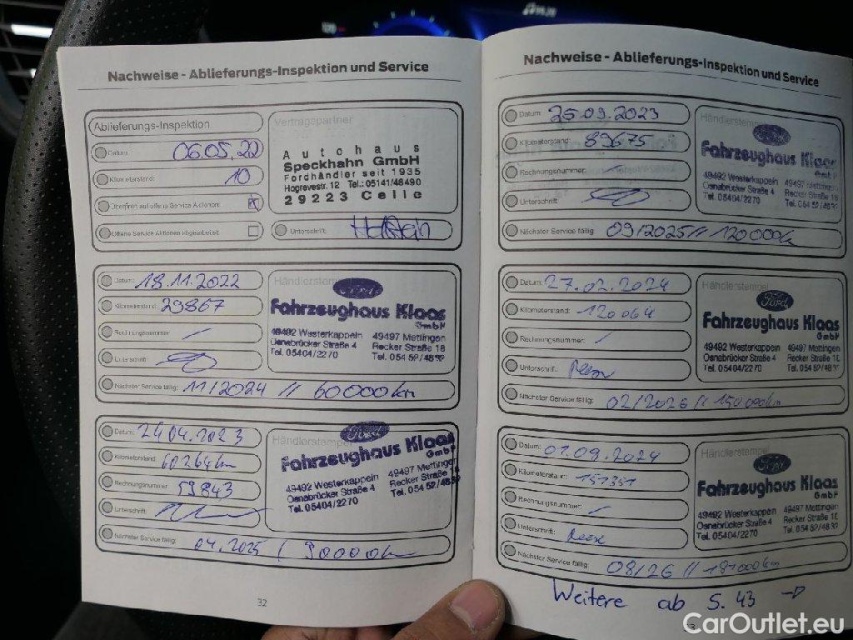 Nachweise - Ablieferungs-Inspektion und Service
Ablieferungs-Inspektion
Vertragspartner
Datum: 06.05.20
Kilometerstand: 10
Überprüft auf offene Service Aktionen
Offene Service Aktionen abgearbeitet
Autohaus
Speckhahn GmbH
Fordhändler seit 1935
Hogrevestr. 12 Tel.: 05141/48490
29223 Celle
Unterschrift:
Datum: 18.11.2022
Kilometerstand: 29867
Rechnungsnummer: /
Unterschrift:
Nächster Service fällig: 11/2024 // 60000km
Händlerstempel
Ford
Fahrzeughaus Klaas
GmbH
49492 Westerkappeln 49497 Mettingen
Osnabrücker Straße 4 Recker Straße 18
Tel. 05404/2270
Datum: 24.04.2023
Kilometerstand: 60264km
Rechnungsnummer: 59843
Unterschrift:
Nächster Service fällig: 04.2025 / 90000km
Händlerstempel
Ford
Fahrzeughaus Klaas
GmbH
49492 Westerkappeln 49497 Mettingen
Osnabrücker Straße 4 Recker Straße
Tel. 05404/2270
32
Nachweise - Ablieferungs-Inspektion und Service
Datum: 25.09.2023
Kilometerstand: 89675
Rechnungsnummer: /
Unterschrift:
Nächster Service fällig: 09/2025 // 120000km
Ford
Fahrzeughaus Klaas
49492 Westerkappeln 49497 Mettingen
Osnabrücker Straße 4 Recker Straße
Tel. 05404/2270
Datum: 27.02.2024
Kilometerstand: 120064
Rechnungsnummer: /
Unterschrift:
Nächster Service fällig: 02/2026 // 150000km
Händlerstempel
Ford
Fahrzeughaus Klaas
GmbH
49492 Westerkappeln 49497 Mettingen
Osnabrücker Straße 4 Recker Straße 18
Tel. 05404/2270
Datum: 02.09.2024
Kilometerstand: 151351
Rechnungsnummer: /
Unterschrift:
Nächster Service fällig: 08/26 // 181000km
Händlerstempel
Ford
Fahrzeughaus Klaas
GmbH
49492 Westerkappeln 49497 Mettingen
Osnabrücker Straße 4 Recker Straße
Tel. 05404/2270
Weitere ab S. 43 →
CarOutlet.eu